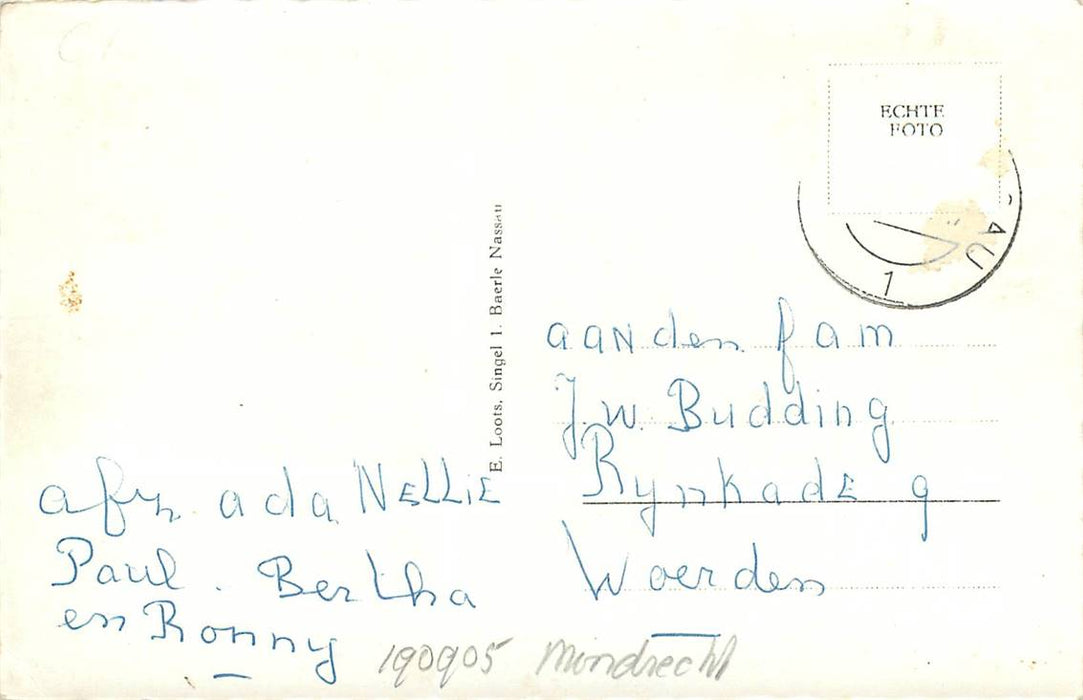 ECHTE
FOTO
AU
1
E. Loots, Singel 1. Baerle Nassau
aan den fam
J.W. Budding
Rynkade 9
Woerden
afz. ada NELLiE
Paul. Bertha
en Ronny
190905